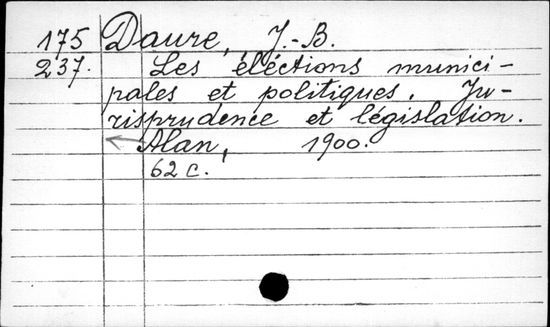 175 Daure, J.-B.
237. Les éléctions munici-
pales et politiques. Ju-
risprudence et législation.
Alan, 1900.
62 c.